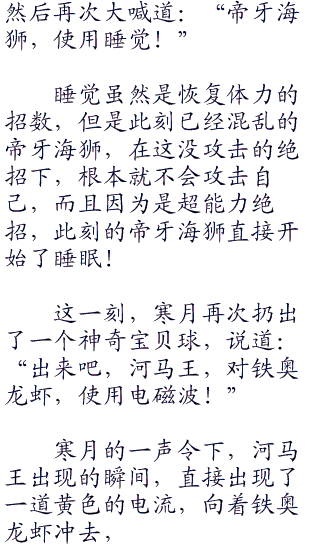 然后再次大喊道：“帝牙海
狮，使用睡觉！”
睡觉虽然是恢复体力的
招数，但是此刻已经混乱的
帝牙海狮，在这没攻击的绝
招下，根本就不会攻击自
己，而且因为是超能力绝
招，此刻的帝牙海狮直接开
始了睡眠！
这一刻，寒月再次扔出
了一个神奇宝贝球，说道：
“出来吧，河马王，对铁奥
龙虾，使用电磁波！”
寒月的一声令下，河马
王出现的瞬间，直接出现了
一道黄色的电流，向着铁奥
龙虾冲去，